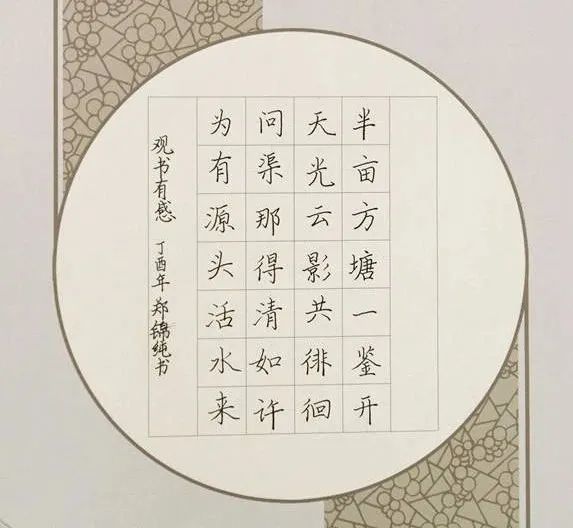 半亩方塘一鉴开
天光云影共徘徊
问渠那得清如许
为有源头活水来
观书有感 丁酉年 郑锦纯书